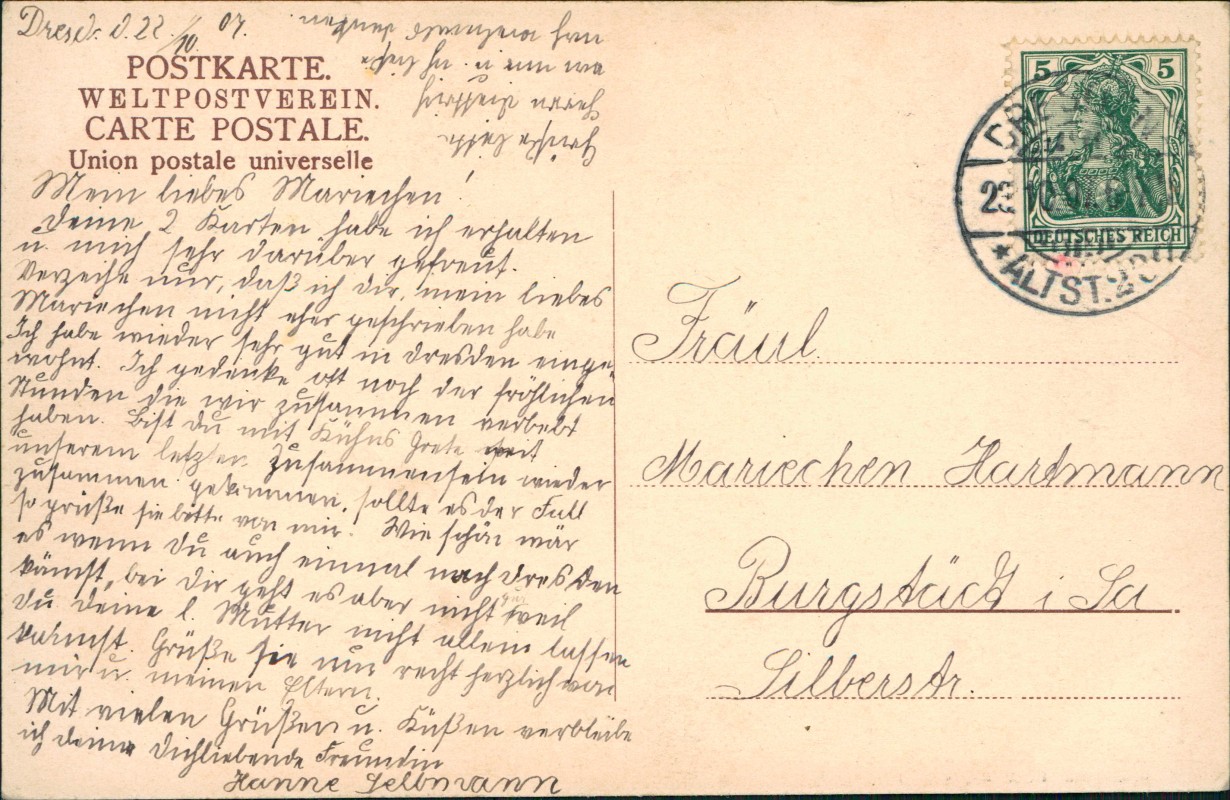 Dresd. d. 22./10. 07.
POSTKARTE.
WELTPOSTVEREIN.
CARTE POSTALE.
Union postale universelle
Mein liebes Mariechen!
Deine 2 Karten habe ich erhalten
u. mich sehr darüber gefreut.
Verzeihe nur, daß ich dir, mein liebes
Mariechen nicht eher geschrieben habe
Ich habe wieder sehr gut in Dresden einge-
wöhnt. Ich gedenke oft noch der fröhlichen
Stunden die wir zusammen verlebt
haben. Bist du mit Kühns Grete seit
unserem letzten Zusammensein wieder
zusammen gekommen, sollte es der Fall
so grüße sie bitte von mir. Wie schön wär
es wenn du auch einmal nach Dresden
kämst, bei dir geht es aber nicht weil
du deine l. Mutter nicht allein lassen
kannst. Grüße sie nun recht herzlich von
mir u. meinen Eltern.
Mit vielen Grüßen u. Küßen verbleibe
ich deine dichliebende Freundin
Hanne Selbmann
5 5
DEUTSCHES REICH
ALTST.
Fräul.
Mariechen Hartmann
Burgstädt i Sa.
Silberstr.